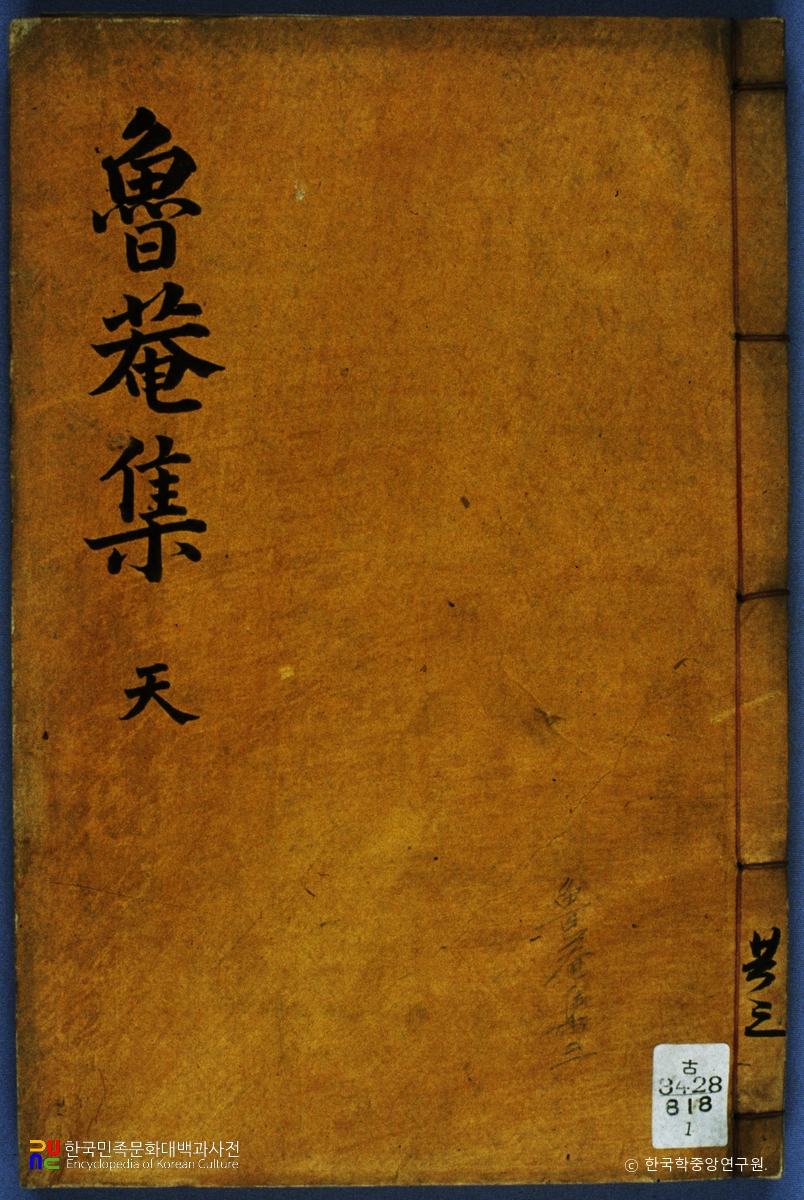 魯菴集 天
共三
魯菴集 三
古
3428
818
1
한국민족문화대백과사전
Encyclopedia of Korean Culture
ⓒ 한국학중앙연구원.